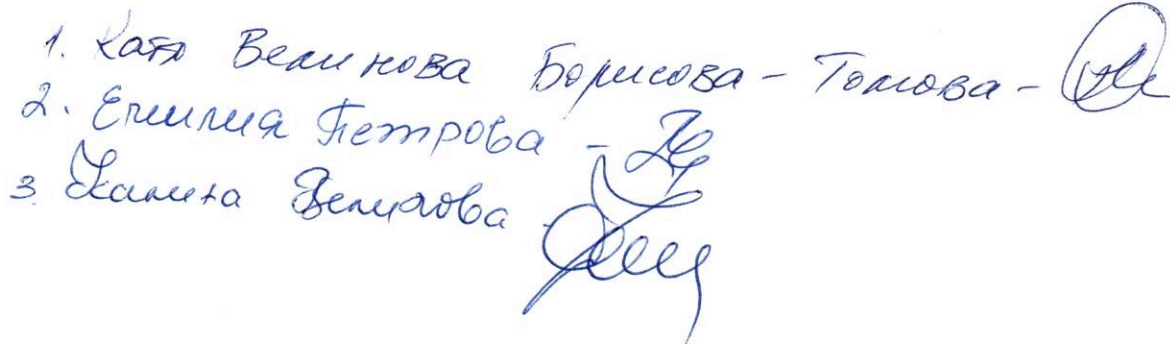 1. Катя Велинова Борисова - Томова -
2. Емилия Петрова -
3. Калина Велинова -